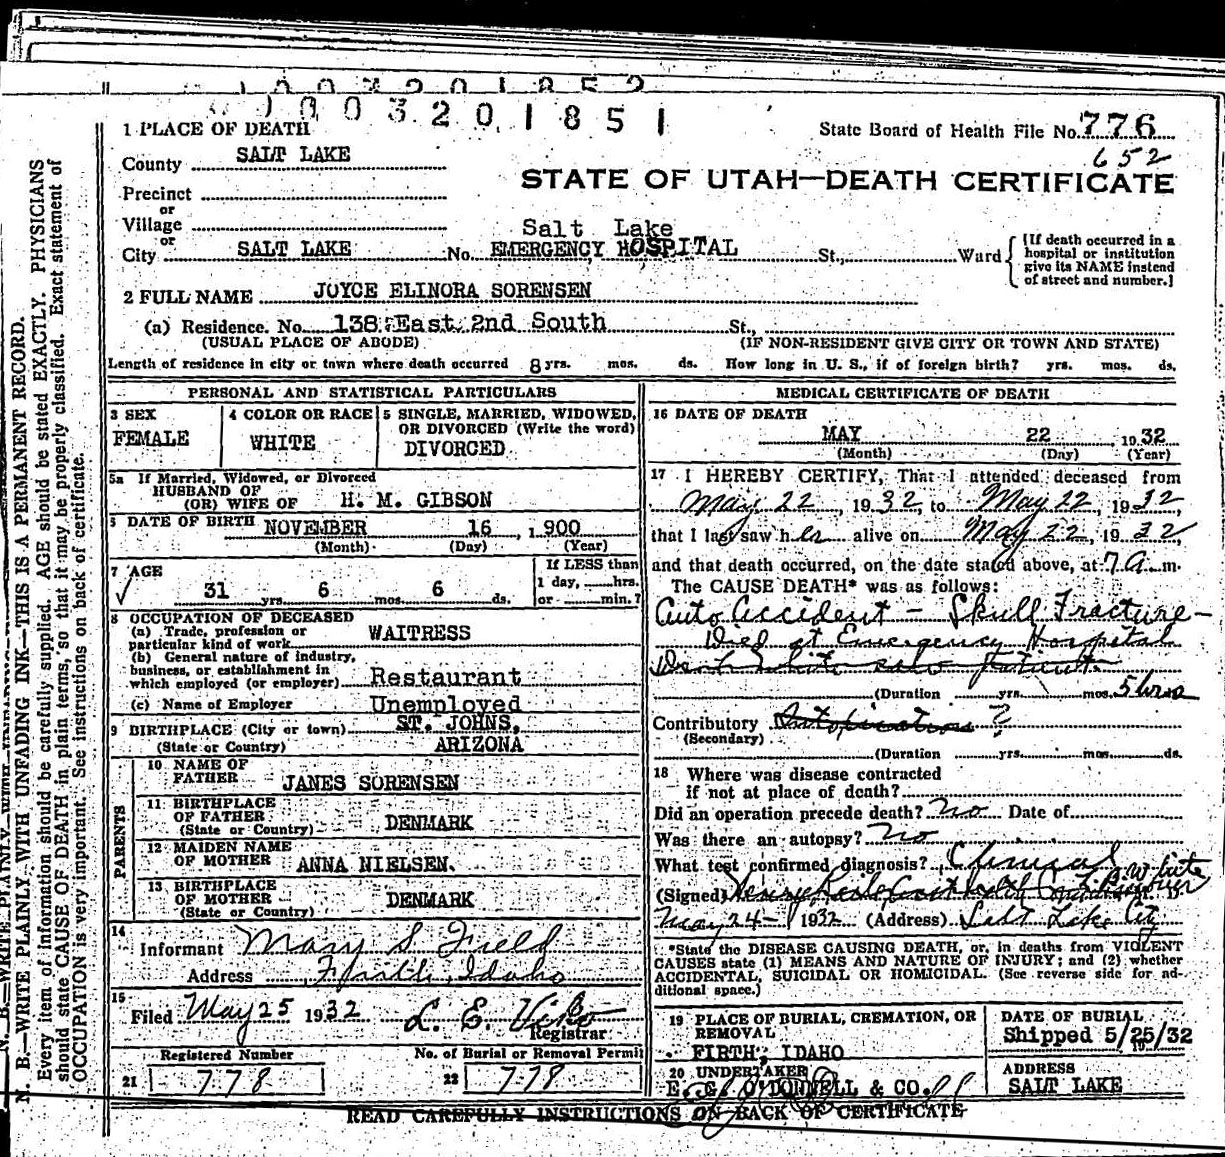 1003201852
1003201851
1 PLACE OF DEATH
State Board of Health File No. 776
652
County SALT LAKE
STATE OF UTAH—DEATH CERTIFICATE
Precinct
or
Village
or
City SALT LAKE No. Salt Lake EMERGENCY HOSPITAL St., Ward
{If death occurred in a hospital or institution give its NAME instead of street and number.}
2 FULL NAME JOYCE ELINORA SORENSEN
(a) Residence. No. 138 East 2nd South St.,
(USUAL PLACE OF ABODE) (IF NON-RESIDENT GIVE CITY OR TOWN AND STATE)
Length of residence in city or town where death occurred 8 yrs. mos. ds. How long in U. S., if of foreign birth? yrs. mos. ds.
PERSONAL AND STATISTICAL PARTICULARS
3 SEX
FEMALE
4 COLOR OR RACE
WHITE
5 SINGLE, MARRIED, WIDOWED,
OR DIVORCED (Write the word)
DIVORCED
5a If Married, Widowed, or Divorced
HUSBAND OF
(OR) WIFE OF H. M. GIBSON
6 DATE OF BIRTH NOVEMBER 16, 1900
(Month) (Day) (Year)
7 AGE
31 yrs. 6 mos. 6 ds.
If LESS than
1 day, hrs.
or min.?
8 OCCUPATION OF DECEASED
(a) Trade, profession or
particular kind of work WAITRESS
(b) General nature of industry,
business, or establishment in
which employed (or employer) Restaurant
(c) Name of Employer Unemployed
9 BIRTHPLACE (City or town) ST. JOHNS,
(State or Country) ARIZONA
PARENTS
10 NAME OF
FATHER JANES SORENSEN
11 BIRTHPLACE
OF FATHER
(State or Country) DENMARK
12 MAIDEN NAME
OF MOTHER ANNA NIELSEN.
13 BIRTHPLACE
OF MOTHER
(State or Country) DENMARK
14
Informant Mary S. Field
Address Firth, Idaho
15
Filed May 25 1932
Registrar
Registered Number
21 778
No. of Burial or Removal Permit
22 778
MEDICAL CERTIFICATE OF DEATH
16 DATE OF DEATH
MAY 22, 1932
(Month) (Day) (Year)
17 I HEREBY CERTIFY, That I attended deceased from
May 22, 1932, to May 22, 1932,
that I last saw her alive on May 22, 1932,
and that death occurred, on the date stated above, at 7 A. m.
The CAUSE DEATH* was as follows:
Auto Accident — Skull Fracture —
Died at Emergency Hospital
(Duration yrs. mos. 5 hrs
Contributory Intoxication ?
(Secondary)
(Duration yrs. mos. ds.
18 Where was disease contracted
if not at place of death?
Did an operation precede death? No Date of
Was there an autopsy? No
What test confirmed diagnosis? Clinical
(Signed)
May 24 — 1932 (Address) Salt Lake City
*State the DISEASE CAUSING DEATH, or, in deaths from VIOLENT
CAUSES state (1) MEANS AND NATURE OF INJURY; and (2) whether
ACCIDENTAL, SUICIDAL OR HOMICIDAL. (See reverse side for ad-
ditional space.)
19 PLACE OF BURIAL, CREMATION, OR
REMOVAL
FIRTH, IDAHO
DATE OF BURIAL
Shipped 5/25/32
20 UNDERTAKER
E. G. O'DONNELL & CO.
ADDRESS
SALT LAKE
READ CAREFULLY INSTRUCTIONS ON BACK OF CERTIFICATE
N. B.—WRITE PLAINLY, WITH UNFADING INK—THIS IS A PERMANENT RECORD.
Every item of information should be carefully supplied. AGE should be stated EXACTLY. PHYSICIANS
should state CAUSE OF DEATH in plain terms, so that it may be properly classified. Exact statement of
OCCUPATION is very important. See instructions on back of certificate.